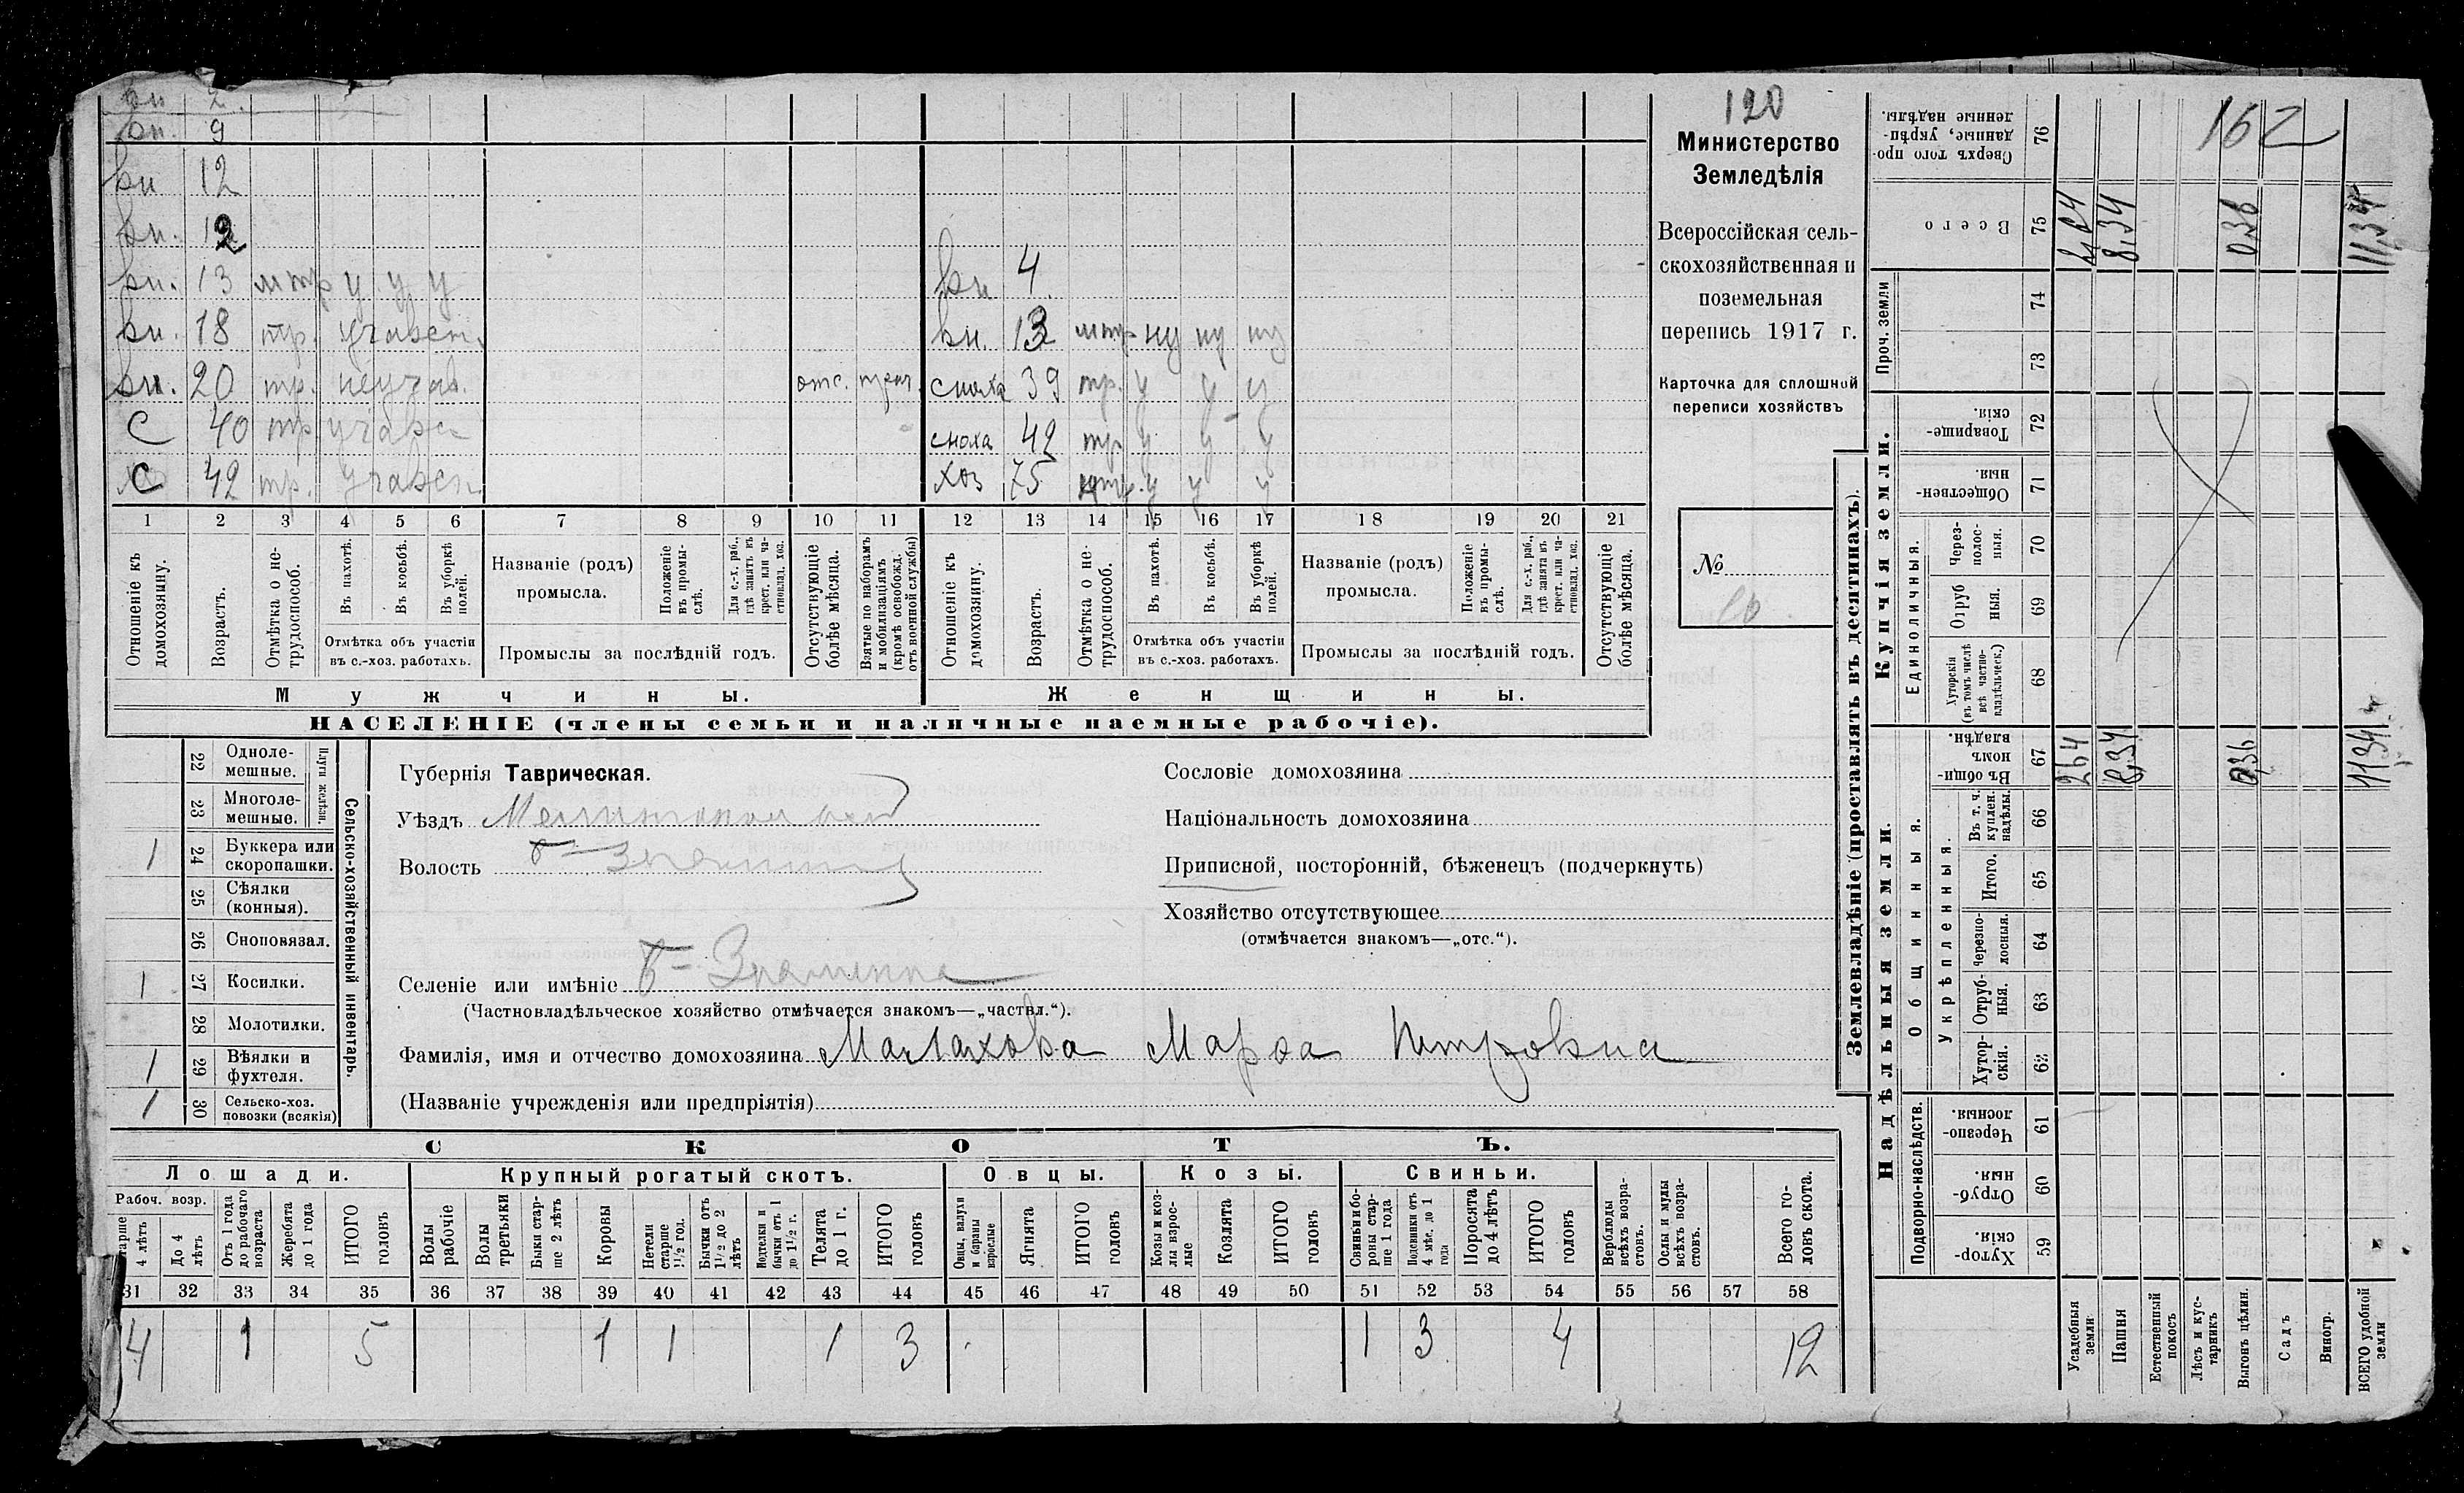 120
162
Министерство
Земледѣлія
Всероссійская сель-
скохозяйственная и
поземельная
перепись 1917 г.
Карточка для сплошной
переписи хозяйствъ
№
вн 2.
вн. 9
вн 12
вн. 12
вн. 13 мтр у у у
вн. 18 тр. учавст.
вн. 20 тр. неучав. отс.
С 40 тр учавст
С 42 тр. учавст.
вн 4
вн. 13 мтр ну ну ну
сноха 39 тр. у у у
сноха 42 тр у у у
хоз 75 у у у
1 2 3 4 5 6 7 8 9 10 11 12 13 14 15 16 17 18 19 20 21
Отношеніе къ домохозяину.
Возрастъ.
Отмѣтка о не-трудоспособ.
Въ пахотѣ.
Въ косьбѣ.
Въ уборкѣ полей.
Отмѣтка объ участіи въ с.-хоз. работахъ.
Названіе (родъ) промысла.
Положеніе въ промы-слѣ.
Для с.-х. раб., гдѣ занятъ въ крест. или ча-стновлад. хоз.
Промыслы за послѣдній годъ.
Отсутствующіе болѣе мѣсяца.
Взятые по наборамъ и мобилизаціямъ (кромѣ освобожд. отъ военной службы)
Отношеніе къ домохозяину.
Возрастъ.
Отмѣтка о не-трудоспособ.
Въ пахотѣ.
Въ косьбѣ.
Въ уборкѣ полей.
Отмѣтка объ участіи въ с.-хоз. работахъ.
Названіе (родъ) промысла.
Положеніе въ промы-слѣ.
Для с.-х. раб., гдѣ занята въ крест. или ча-стновлад. хоз.
Промыслы за послѣдній годъ.
Отсутствующіе болѣе мѣсяца.
Мужчины.
Женщины.
НАСЕЛЕНІЕ (члены семьи и наличные наемные рабочіе).
22 Одноле-мешные.
23 Многоле-мешные.
Плуги желѣзн.
1 24 Буккера или скоропашки.
25 Сѣялки (конныя).
26 Сноповязал.
1 27 Косилки.
28 Молотилки.
1 29 Вѣялки и фухтеля.
1 30 Сельско-хоз. повозки (всякія)
Сельско-хозяйственный инвентарь.
Губернія Таврическая.
Уѣздъ Мелитопольскій
Волость Б-Знаменск
Селеніе или имѣніе Б-Знаменка
(Частновладѣльческое хозяйство отмѣчается знакомъ—„частвл.“).
Фамилія, имя и отчество домохозяина Малахова Марфа Петровна
(Названіе учрежденія или предпріятія)
Сословіе домохозяина
Національность домохозяина
Приписной, посторонній, бѣженецъ (подчеркнуть)
Хозяйство отсутствующее
(отмѣчается знакомъ—„отс.“).
СКОТЪ.
Лошади. Крупный рогатый скотъ. Овцы. Козы. Свиньи.
Рабоч. возр.
Старше 4 лѣтъ
До 4 лѣтъ
Отъ 1 года до рабочаго возраста
Жеребята до 1 года
ИТОГО головъ
Волы рабочіе
Волы третьяки
Быки стар-ше 2 лѣтъ
Коровы
Нетели старше 1 1/2 год.
Бычки отъ 1 1/2 до 2 лѣтъ
Подтелки и бычки отъ 1 до 1 1/2 г.
Телята до 1 г.
ИТОГО головъ
Овцы, валухи и бараны взрослые
Ягнята
ИТОГО головъ
Козы и коз-лы взрос-лые
Козлята
ИТОГО головъ
Свиньи и бо-ровы стар-ше 1 года
Подсвинки отъ 4 мѣс. до 1 года
Поросята до 4 лѣтъ
ИТОГО головъ
Верблюды всѣхъ возра-стовъ.
Ослы и мулы всѣхъ возра-стовъ.
Всего го-ловъ скота.
31 32 33 34 35 36 37 38 39 40 41 42 43 44 45 46 47 48 49 50 51 52 53 54 55 56 57 58
4 1 5 1 1 1 3 1 3 4 12
Землевладѣніе (проставлять въ десятинахъ).
Сверхъ того про-данные, укрѣп-ленные надѣлы. 76
Всего 75 8,34 0,36 11,34
Проч. земли 74
73
Купчія земли.
Товарище-скія. 72
Обществен-ныя. 71
Единоличныя.
Через-полос-ныя. 70
Отруб-ныя. 69
Хуторскія (въ томъ числѣ всѣ частно-владѣльческ.) 68
Надѣльныя земли.
Общинныя.
Въ общин-номъ владѣн. 67 264 8,34 0,36 11,34
Укрѣпленныя.
Въ т. ч. куплен. надѣлы. 66
Итого. 65
Черезпо-лосныя. 64
Отруб-ныя. 63
Хутор-скія. 62
Подворно-наслѣдств.
Черезпо-лосныя. 61
Отруб-ныя. 60
Хутор-скія. 59
Усадебныя земли
Пашня
Естественный покосъ
Лѣсъ и кус-тарникъ
Выгонъ цѣлин.
Садъ
Виногр.
ВСЕГО удобной земли